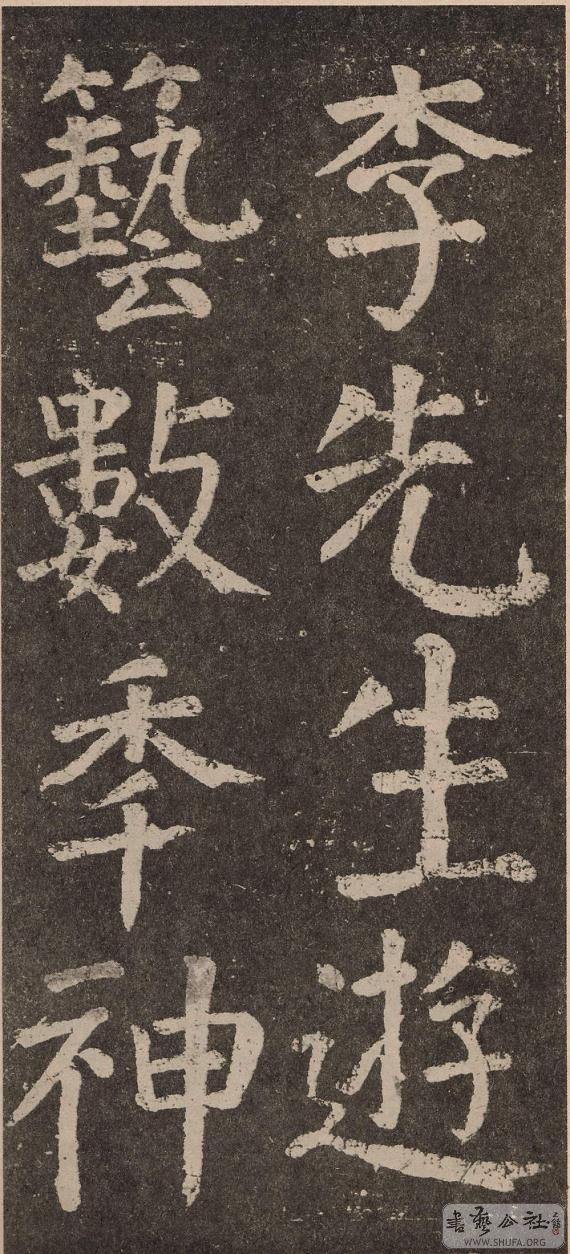 李先生遊
藝數秊神
書藝公社
WWW.SHUFA.ORG